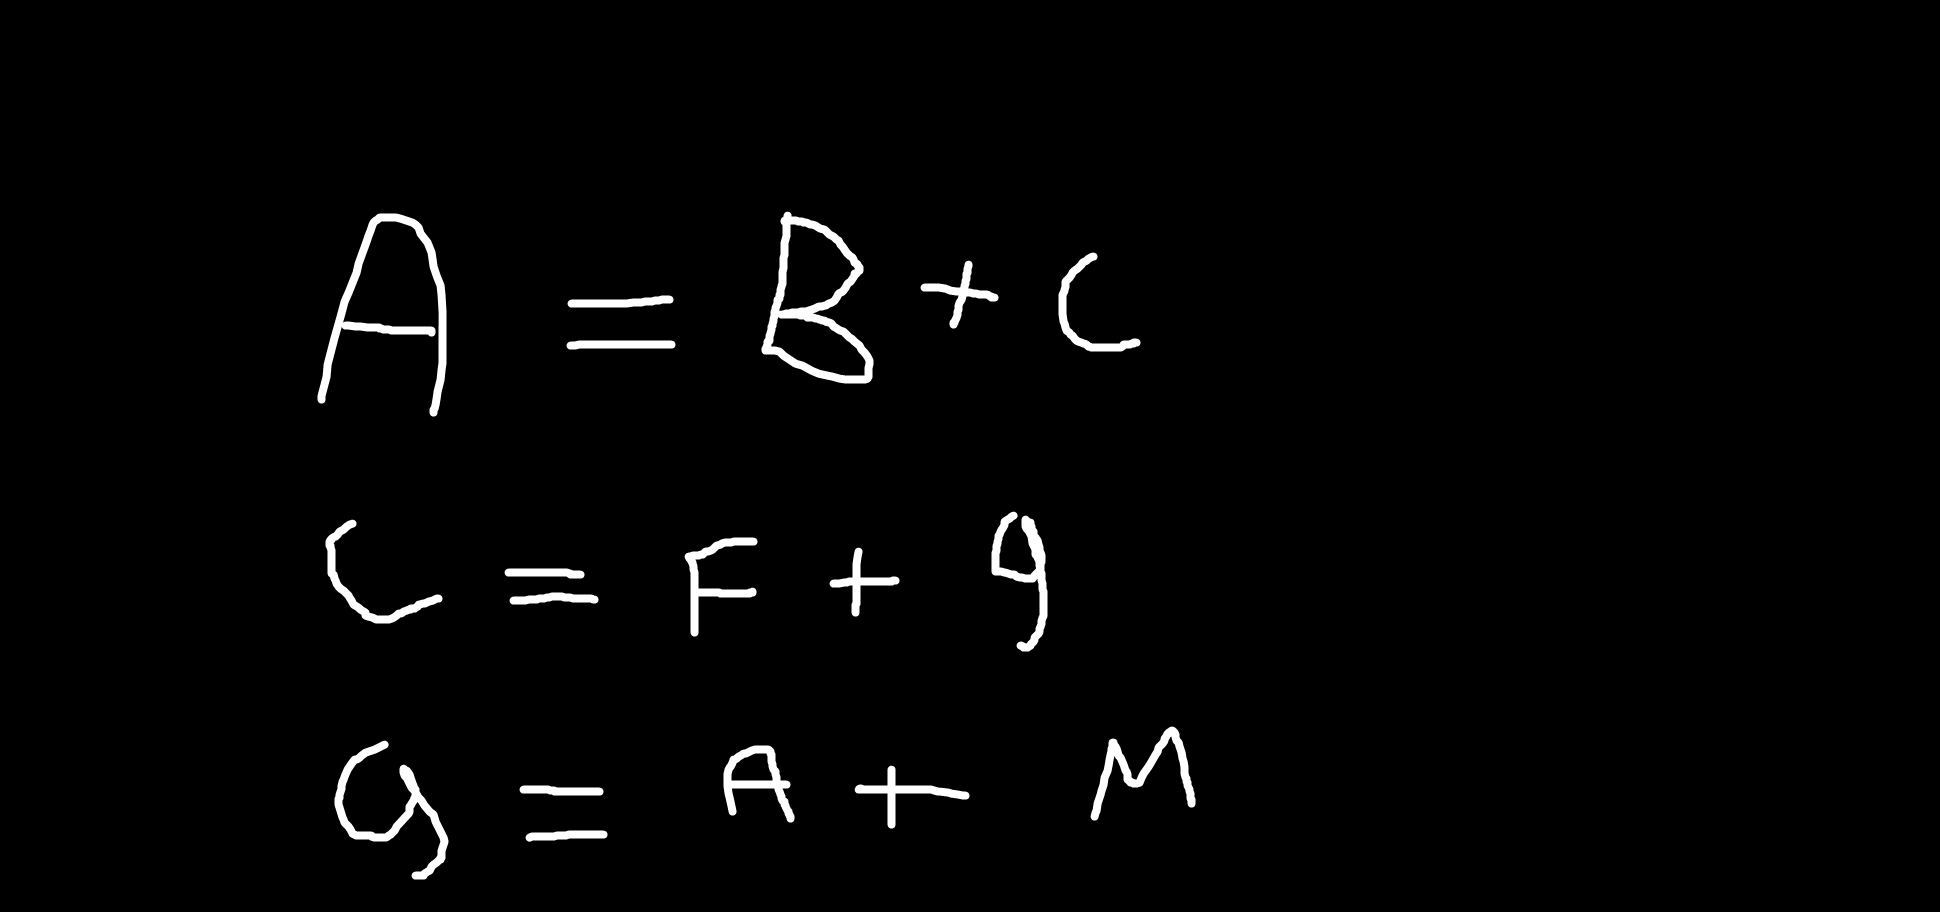 A = B + C
C = F + g
g = A + M